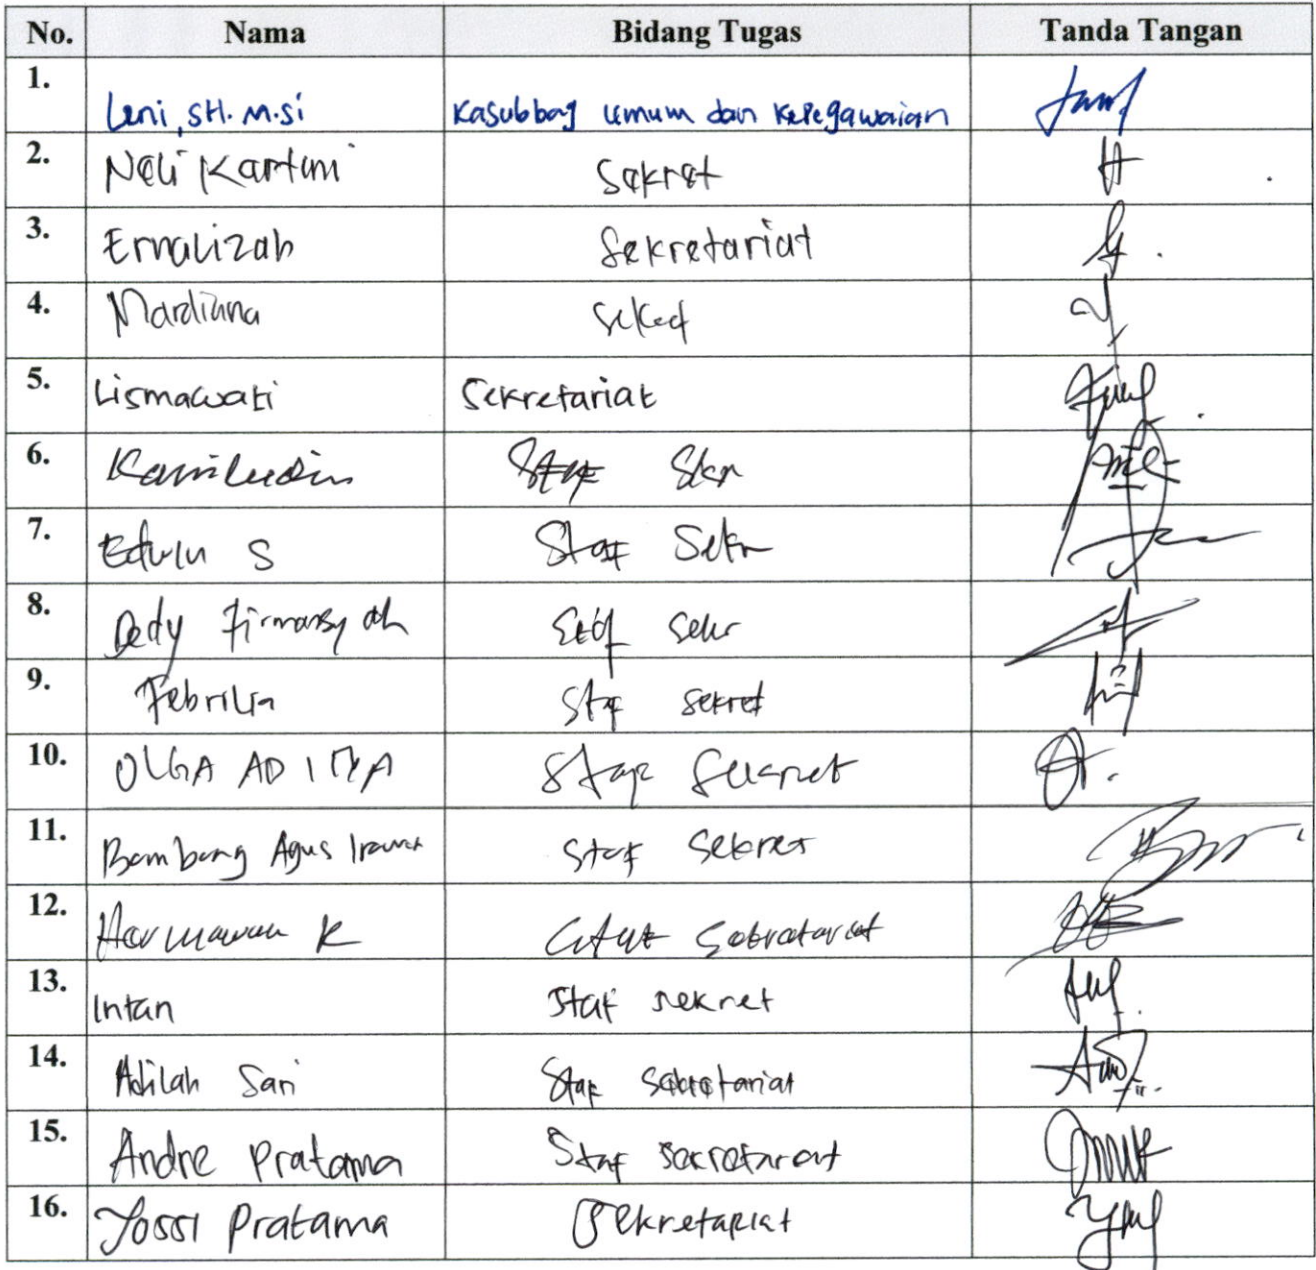 No. Nama Bidang Tugas Tanda Tangan
1. Leni, SH. M.Si Kasubbag Umum dan Kepegawaian
2. Neli Kartini Sekret
3. Ernalizah Sekretariat
4. Mardiana Sekret
5. Lismawati Sekretariat
6. Kamiludin Staf Skr
7. Edwin S Staf Sekr
8. Dedy Firmansyah Staf Sekr
9. Febrilia Staf Sekret
10. OLGA ADITYA Staf Sekret
11. Bambang Agus Irawan Staf Sekret
12. Hermawan K Staf Sekretariat
13. Intan Staf Sekret
14. Adilah Sari Staf Sekretariat
15. Andre Pratama Staf Sekretariat
16. Yossi Pratama Sekretariat